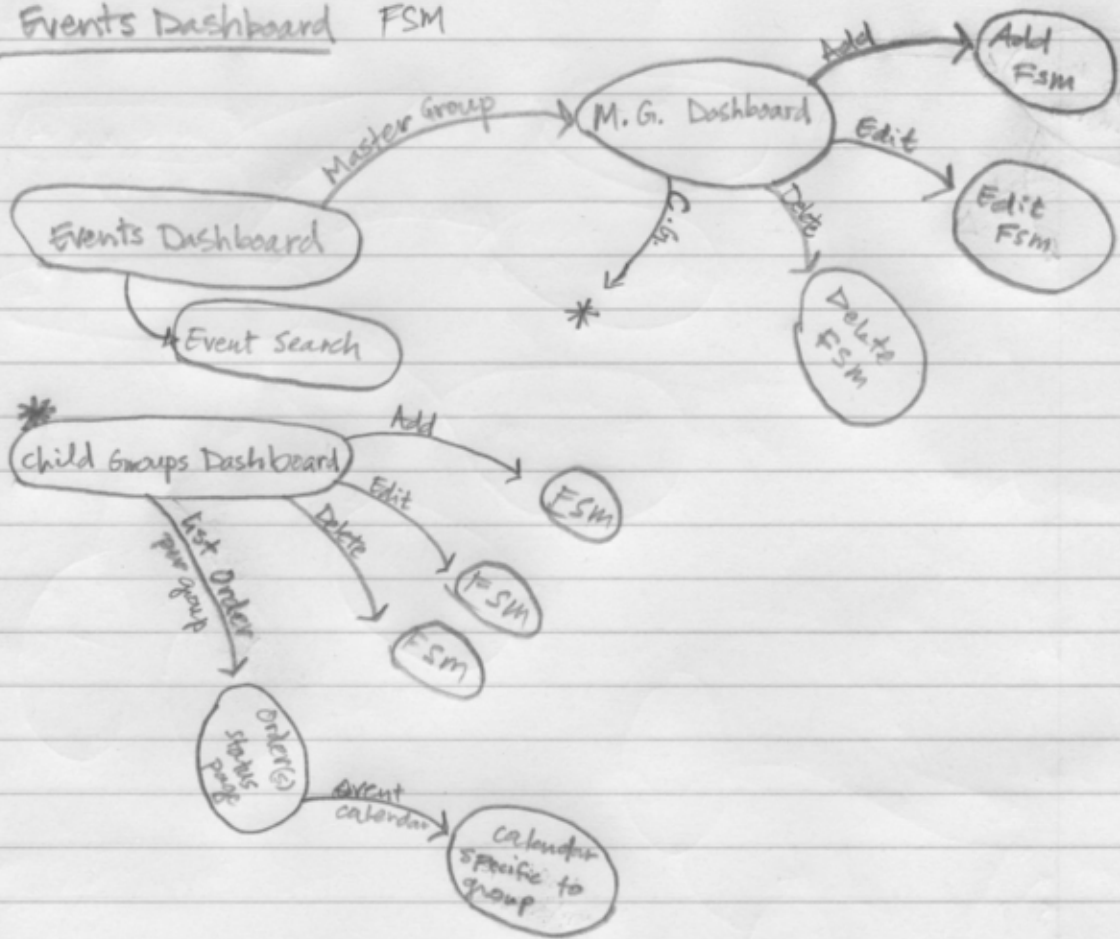 Events Dashboard FSM
Add
Add
Fsm
Master Group
M. G. Dashboard
Edit
Edit
Fsm
Events Dashboard
C.G.
Delete
*
Delete
FSM
Event Search
*
Child Groups Dashboard
Add
FSM
Edit
FSM
Delete
FSM
List Order
per group
Order(s)
status
page
event
calendar
calendar
specific to
group